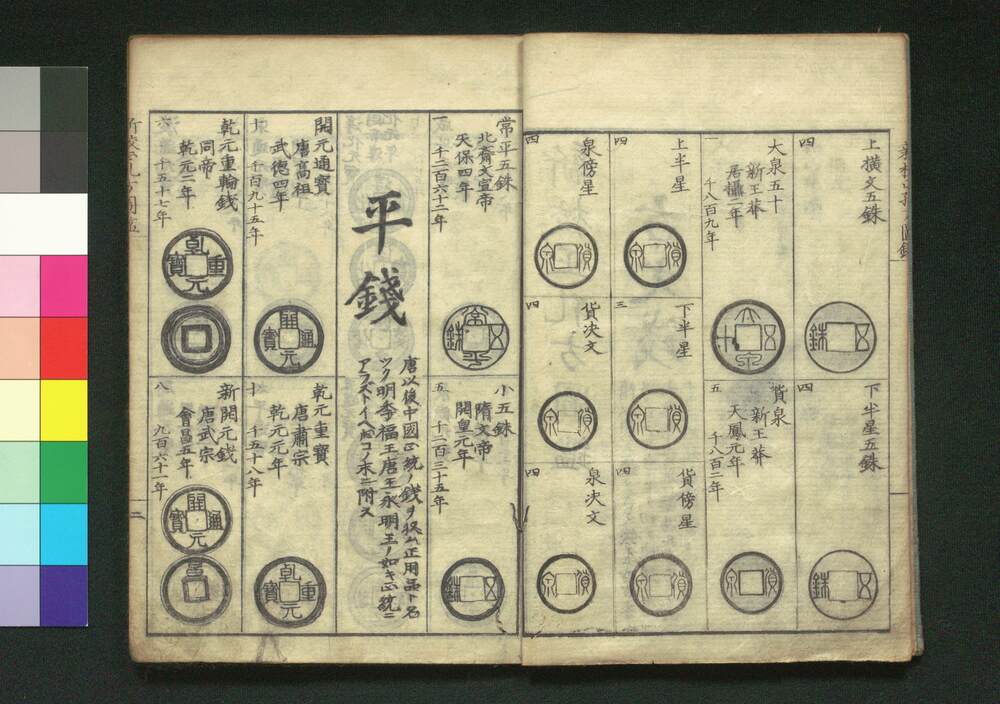 上横文五銖
四
五銖
下半星五銖
四
五銖
大泉五十
新王莽
居攝二年
一
千八百九年
大泉五十
貨泉
新王莽
天鳳元年
五
千八百二年
貨泉
上半星
四
貨泉
下半星
三
貨泉
貨傍星
四
貨泉
泉傍星
四
貨泉
貨决文
四
貨泉
泉决文
四
貨泉
常平五銖
北齋文宣帝
天保四年
一
千二百六十二年
常平五銖
小五銖
隋文帝
開皇元年
五
千二百三十五年
五銖
平錢
唐以後中國正統ノ錢ヲ
正用品ト名
ツク明季福王唐王永明王ノ如キ正統ニ
アラズトイヘ𪜈コノ末ニ附ス
開元通寳
唐高祖
武德四年
十
千百九十五年
開元通寳
乾元重寳
唐肅宗
乾元元年
十
千五十八年
乾元重寳
乾元重輪錢
同帝
乾元二年
六
千五十七年
乾元重寳
新開元錢
唐武宗
會昌五年
八
九百六十一年
開元通寳
昌
二